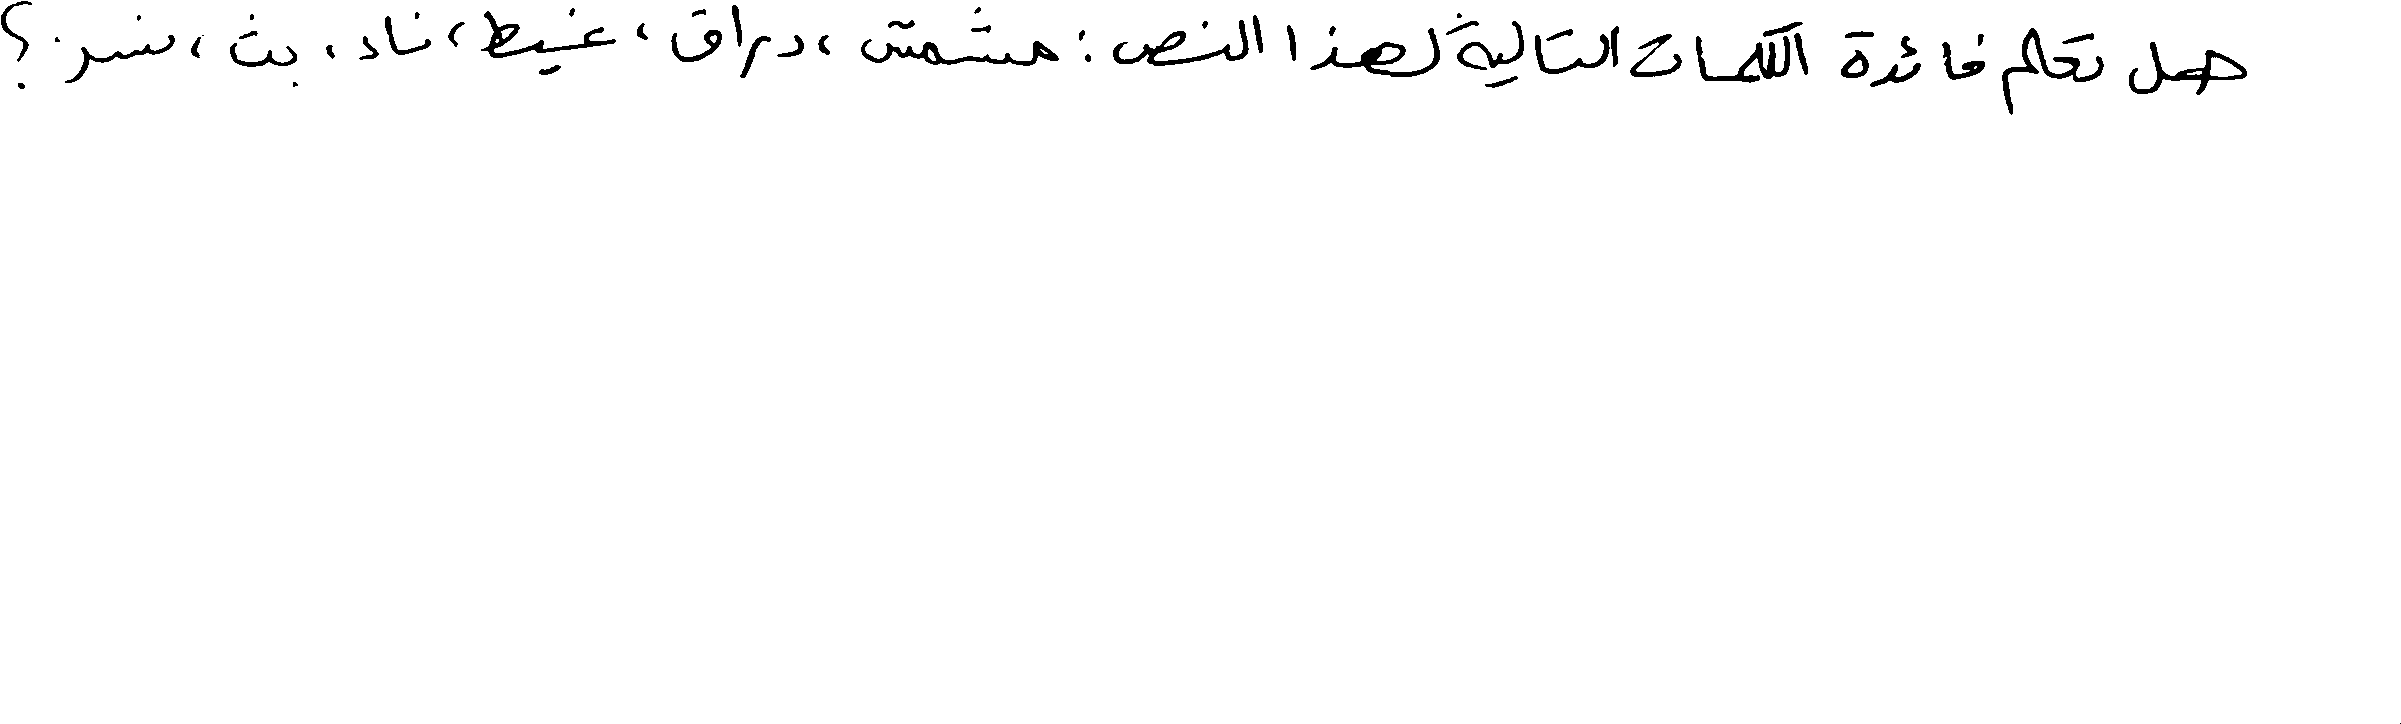 هل تعلم فائدة الكلمات التالية لهذا النص: مشمش، دراق، غيط، ناد، بت، نسر؟